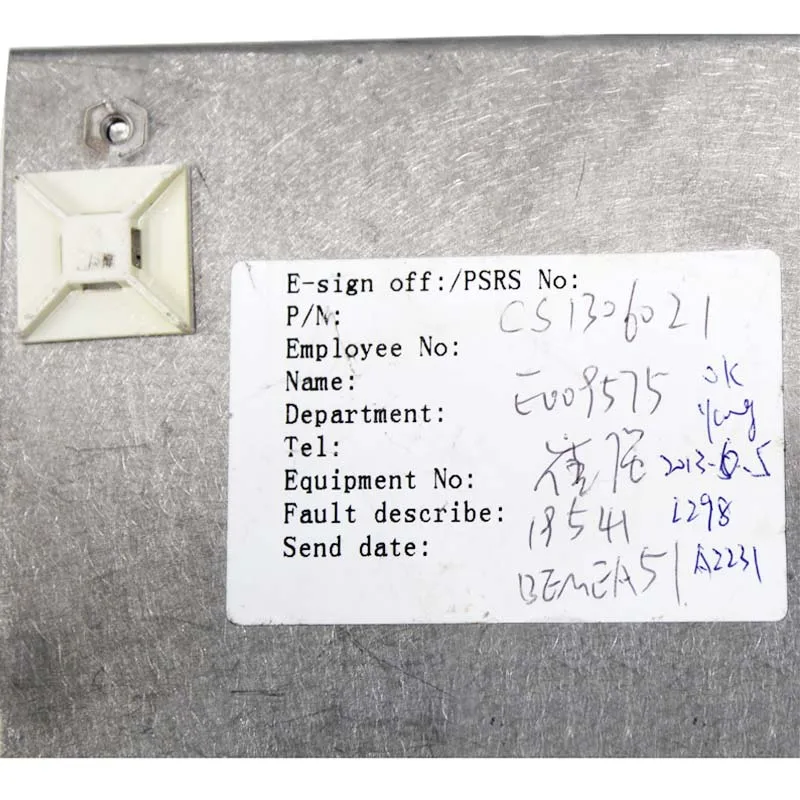 E-sign off:/PSRS No:
P/N: CS1306021
Employee No:
Name: E009575 OK
Department: Yung
Tel: 崔强 2013-6-5
Equipment No:
Fault describe: 18541 1298
Send date: BEMEA51 A2231